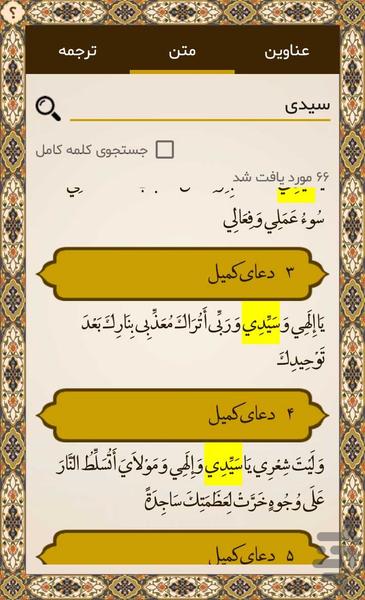 ؟
عناوین
متن
ترجمه
سیدی
جستجوی کلمه کامل
۶۶ مورد یافت شد
سُوءُ عَمَلِي وَفِعَالِي
۳ دعای کمیل
يَا إِلَهِي وَسَيِّدِي وَرَبِّي أَتُرَاكَ مُعَذِّبِي بِنَارِكَ بَعْدَ
تَوْحِيدِكَ
۴ دعای کمیل
وَلَيْتَ شِعْرِي يَا سَيِّدِي وَإِلَهِي وَمَوْلاَيَ أَتُسَلِّطُ النَّارَ
عَلَى وُجُوهٍ خَرَّتْ لِعَظَمَتِكَ سَاجِدَةً
۵ دعای کمیل